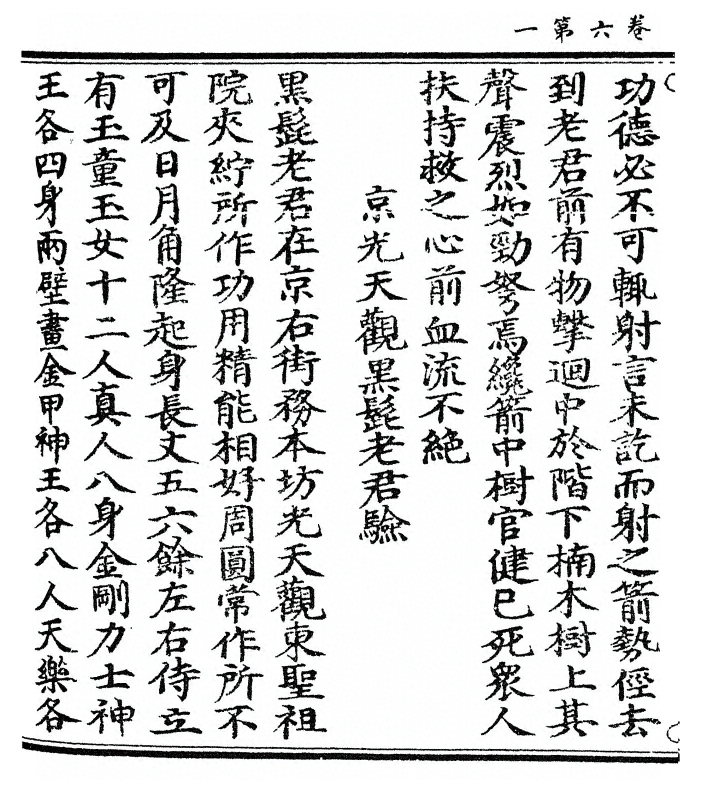 卷六第一
功德必不可輒射言未訖而射之箭勢徑去
到老君前有物擊迴中於階下楠木樹上其
聲震烈如勁弩焉纔箭中樹官健已死衆人
扶持救之心前血流不絕
京光天觀黑髭老君驗
黑髭老君在京右街務本坊光天觀東聖祖
院夾紵所作功用精能相好周圓常作所不
可及日月角隆起身長丈五六餘左右侍立
有玉童玉女十二人真人八身金剛力士神
王各四身兩壁畫金甲神王各八人天樂各